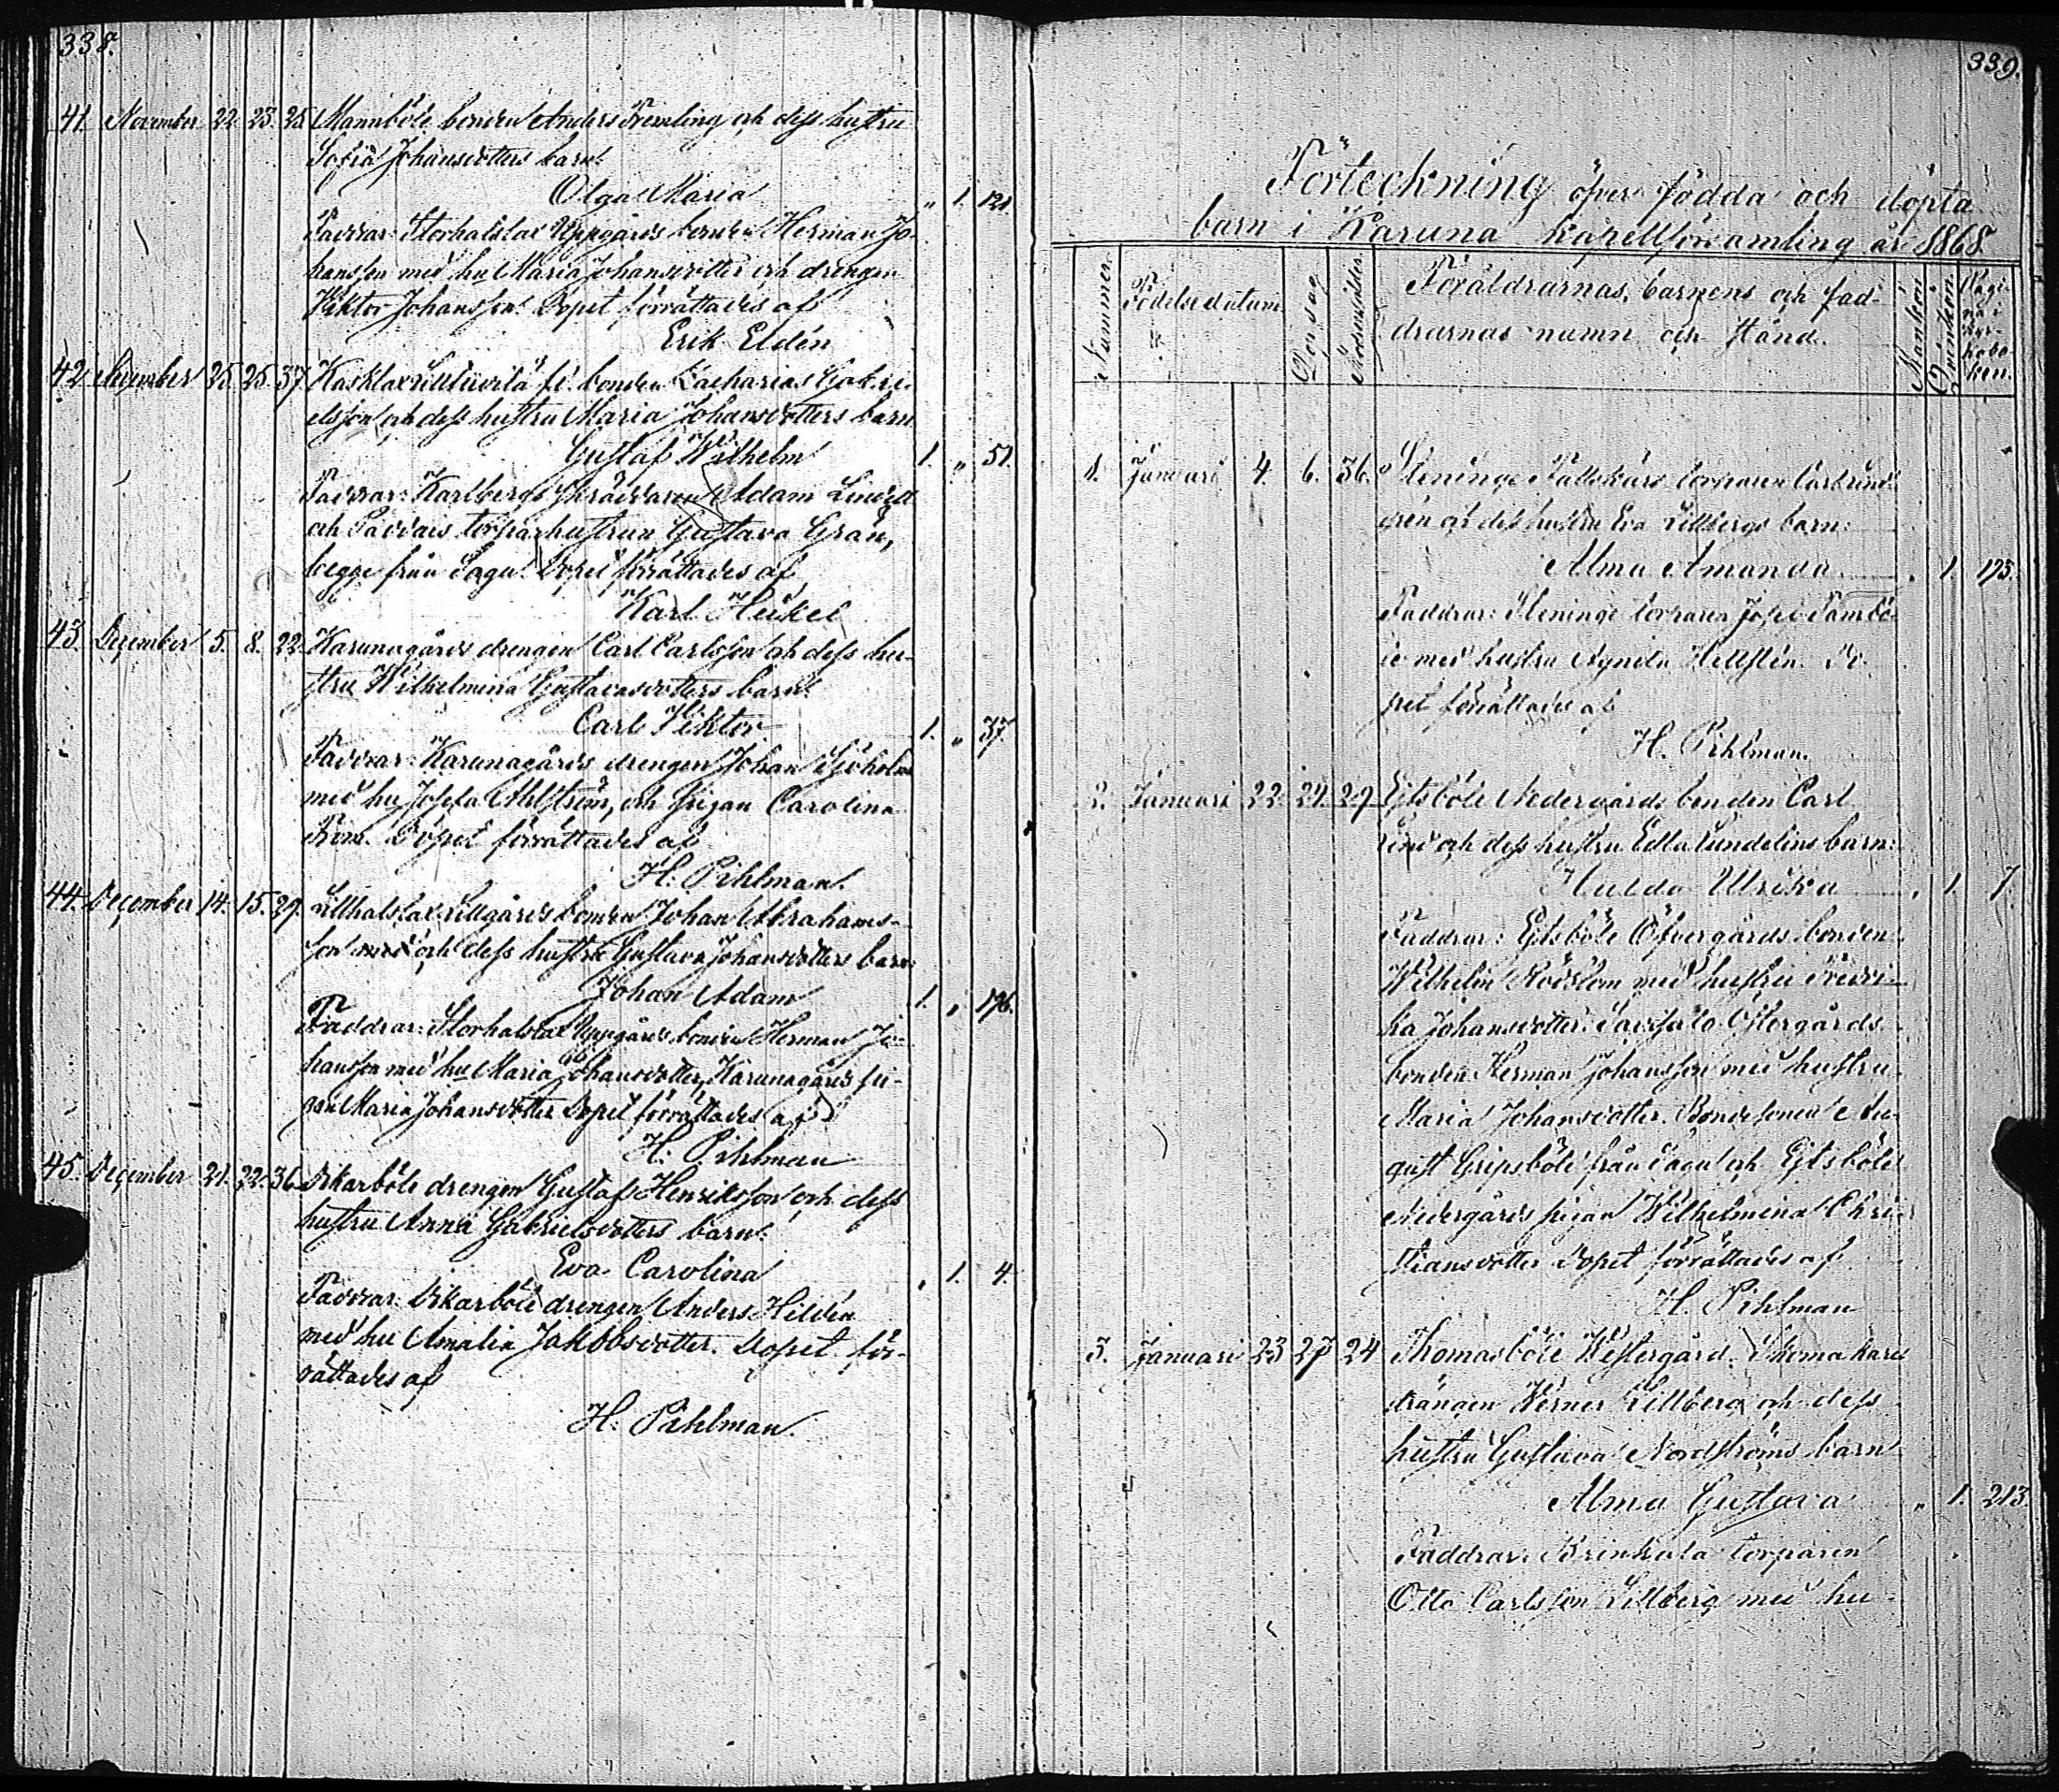 338.
41. November 22. 23. 25. Mannböle bonden Anders Fremling och dess hustru
Sofia Johansdotters barn:
Olga Maria " 1. 121.
Faddrar: Storhalslax Uppgårds bonden Herman Jo-
hansson med hu Maria Johansdotter och drengen
Viktor Johansson. Dopet förrättades af
Erik Eldén
42. November 25. 25. 37. bonden Zacharias Gabri-
elsson och dess hustru Maria Johansdotters barn
Gustaf Wilhelm 1. " 51.
Faddrar: Karlbergs skräddaren Adam
och torparhustrun Gustava Grän,
begge från Sagu. Dopet förrättades af
Karl Heikel
43. December 5. 8. 22. Karunagårds drengen Carl Carlsson och dess hu-
stru Wilhelmina Gustavasdotters barn:
Carl Viktor. 1. " 37.
Faddrar: Karunagårds drengen Johan Sjöholm
med hu Josefa Ahlström, och pigan Carolina
From. Dopet förrättades af
H. Pihlman.
44. December 14. 15. 29. Lillhalslax Lillgårds bonden Johan Abrahams-
son med och dess hustru Gustava Johansdotters barn:
Johan Adam 1. " 196.
Faddrar: Storhalslax Uppgårds bonden Herman Jo-
hansson med hu Maria Johansdotter, Karunagårds pi-
gan Maria Johansdotter Dopet förrättades af
H. Pihlman
45. December 21. 22. 36. drengen Gustaf Henriksson och dess
hustru Anna Gabrielsdotters barn:
Eva Carolina " 1. 4.
Faddrar: drengen Anders Hildén
med hu Amalia Jakobsdotter. Dopet för-
rättades af
H. Pihlman.
339.
Förteckning öfver födda och döpta
barn i Karuna kapellförsamling år 1868.
Nummer.
Födelsedatum
Dopdag
Modrens ålder.
Föräldrarnas, barnens och fad-
drarnas namn och stånd.
Mankön
Qvinkön
Pagi-
na i
kyr-
kobo-
ken.
1. Januari 4. 6. 36. Steninge torparen
och dess hustru Eva Lillbergs barn:
Alma Amanda " 1. 175.
Faddrar: Steninge torparen
med hustru Agneta Hellstén. Do-
pet förrättades af
H. Pihlman.
2. Januari 22. 24. 29. Ejtsböle Nedergårds bonden Carl
Lind och dess hustru Edla Lundelins barn:
Hulda Ulrika " 1. 7.
Faddrar: Ejtsböle Öfvergårds bonden
Wilhelm Rödblom med hustru Fredri-
ka Johansdotter. Östergårds
bonden Herman Johansson med hustru
Maria Johansdotter. Bondesonen Au-
gust Gripsböle från Sagu och Ejtsböle
Nedergårds pigan Wilhelmina Chri-
stiansdotter Dopet förrättades af
H. Pihlman
3. Januari 23 27 24 Thomasböle Westergård. Skomakare
drängen Werner Lillberg och dess
hustru Gustava Nordströms barn
Alma Gustava " 1. 213.
Faddrar: Brinkala torparen
Otto Carlsson Lillberg med hu-